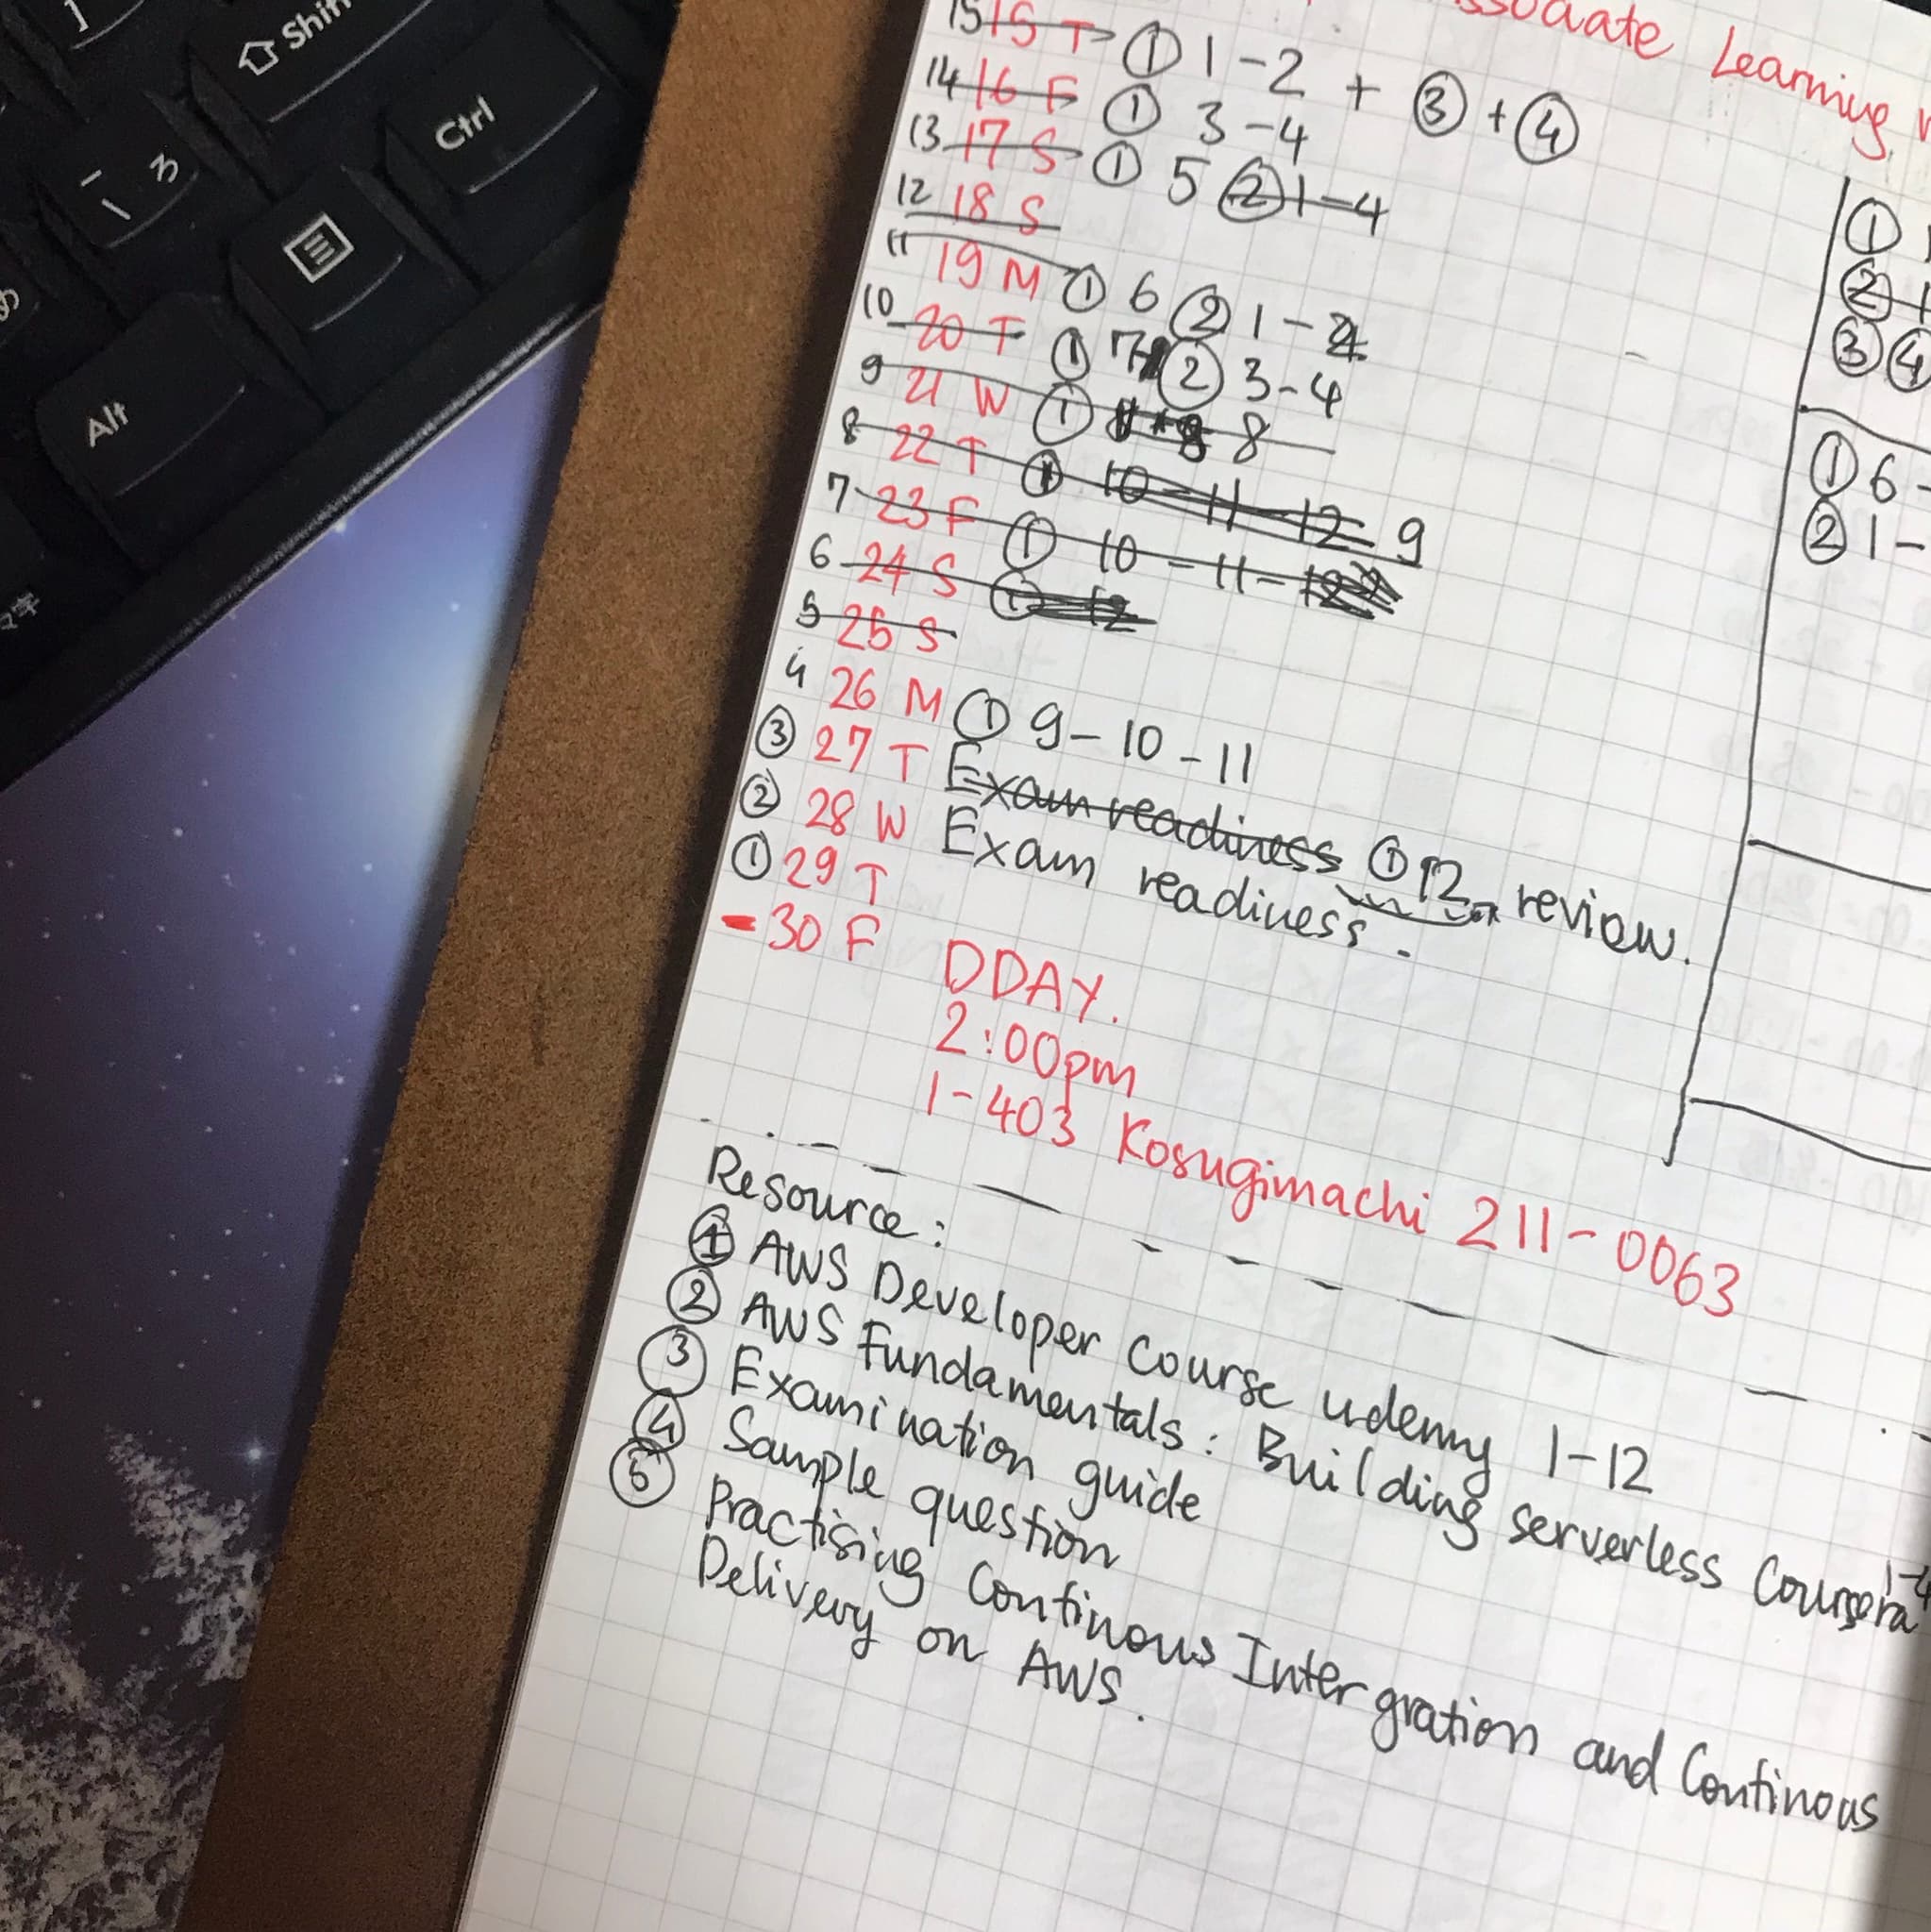 Shift
Ctrl
Alt
ろ
ssociate Learning
15 15 T ① 1-2 + ③ + ④
14 16 F ① 3-4
13 17 S ① 5 ② 1-4
12 18 S
11 19 M ① 6 ② 1-2
10 20 T ① 7 ② 3-4
9 21 W ① 8
8 22 T ① 10-11-12 9
7 23 F ① 10-11-12
6 24 S ① 12
5 25 S
4 26 M ① 9-10-11
③ 27 T Exam readiness ① 12 review.
② 28 W Exam readiness.
① 29 T
- 30 F DDAY.
2:00pm
1-403 Kosugimachi 211-0063
Resource:
① AWS Developer Course udemy 1-12
② AWS Fundamentals: Building serverless Coursera 1-4
③ Examination guide
④ Sample question
⑤ Practising Continous Intergration and Continous
Delivery on AWS.
①
②
③④
① 6-
② 1-